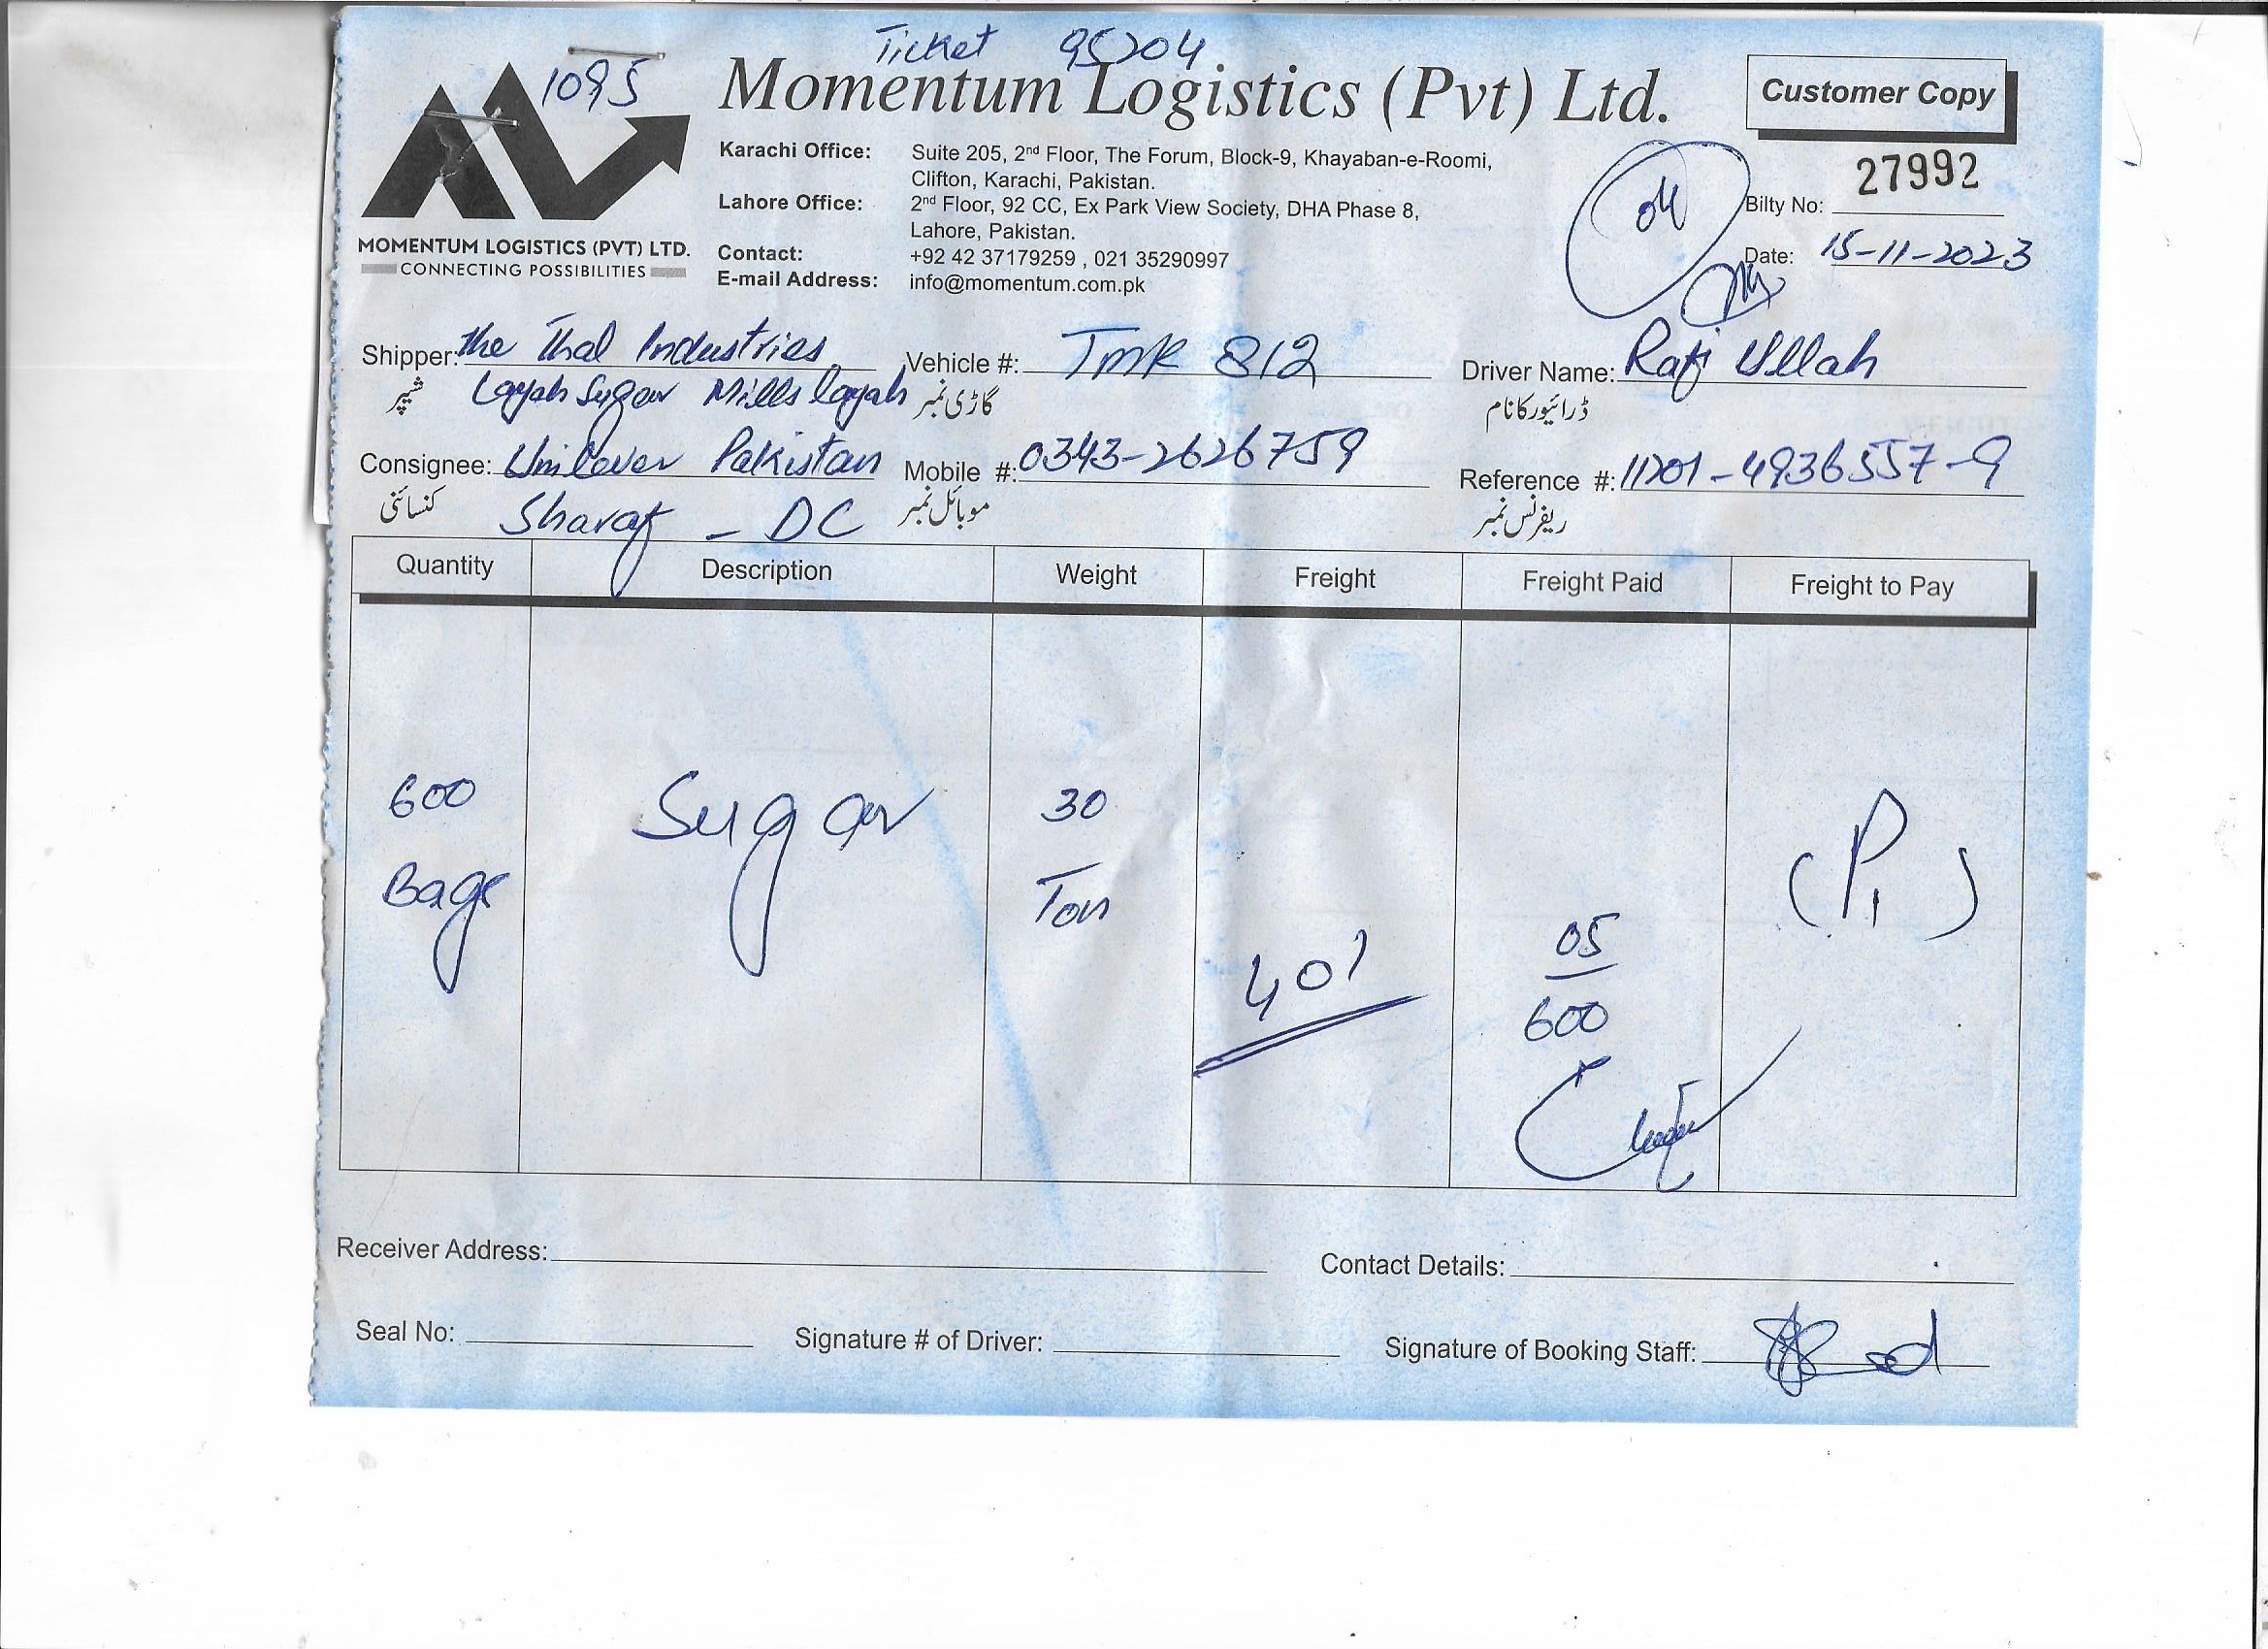 Ticket 95204
1095
Momentum Logistics (Pvt) Ltd.
Customer Copy
MOMENTUM LOGISTICS (PVT) LTD.
CONNECTING POSSIBILITIES
Karachi Office: Suite 205, 2nd Floor, The Forum, Block-9, Khayaban-e-Roomi,
Clifton, Karachi, Pakistan.
Lahore Office: 2nd Floor, 92 CC, Ex Park View Society, DHA Phase 8,
Lahore, Pakistan.
Contact: +92 42 37179259 , 021 35290997
E-mail Address: info@momentum.com.pk
Bilty No: 27992
Date: 15-11-2023
Shipper: The Thal Industries Vehicle #: TMK 812 Driver Name: Rafi Ullah
شیپر Layah Sugar Mills layah گاڑی نمبر ڈرائیور کا نام
Consignee: Unilever Pakistan Mobile #: 0343-2626759 Reference #: 11201-4936557-9
کنسائنی Sharaf - DC موبائل نمبر ریفرنس نمبر
Quantity Description Weight Freight Freight Paid Freight to Pay
600 Sugar 30
Bags Ton
05
600
Receiver Address: Contact Details:
Seal No: Signature # of Driver: Signature of Booking Staff: